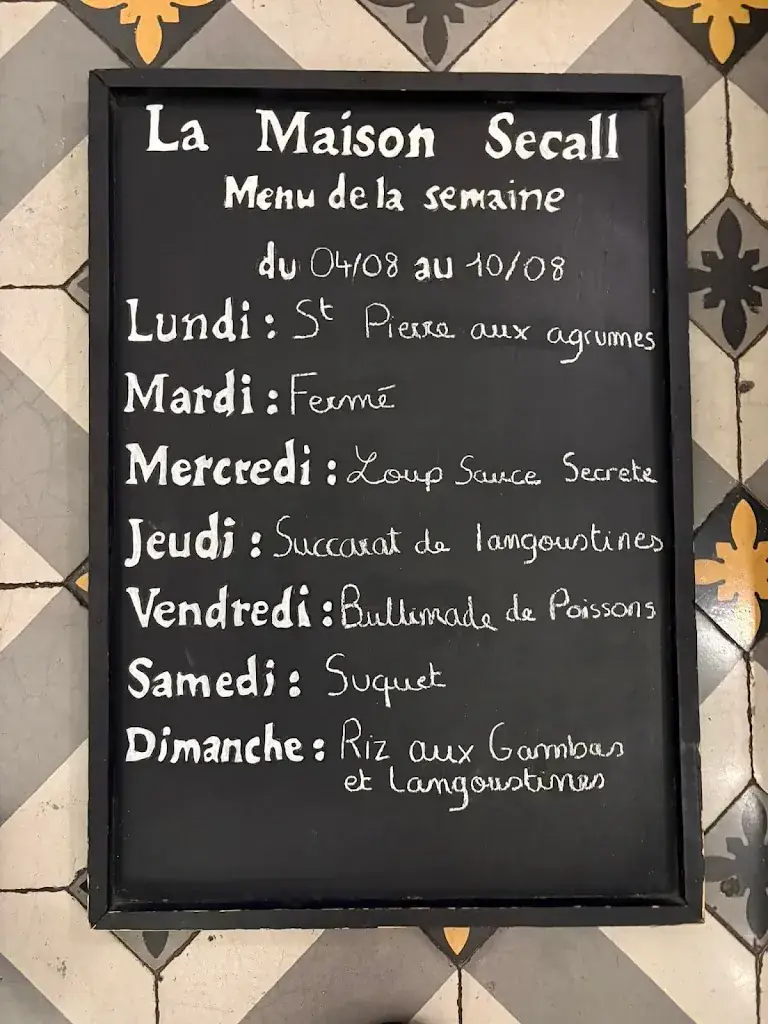 La Maison Secall
Menu de la semaine
du 04/08 au 10/08
Lundi : St Pierre aux agrumes
Mardi : Fermé
Mercredi : Loup Sauce Secrete
Jeudi : Succarat de langoustines
Vendredi : Bullimade de Poissons
Samedi : Suquet
Dimanche : Riz aux Gambas
et Langoustines